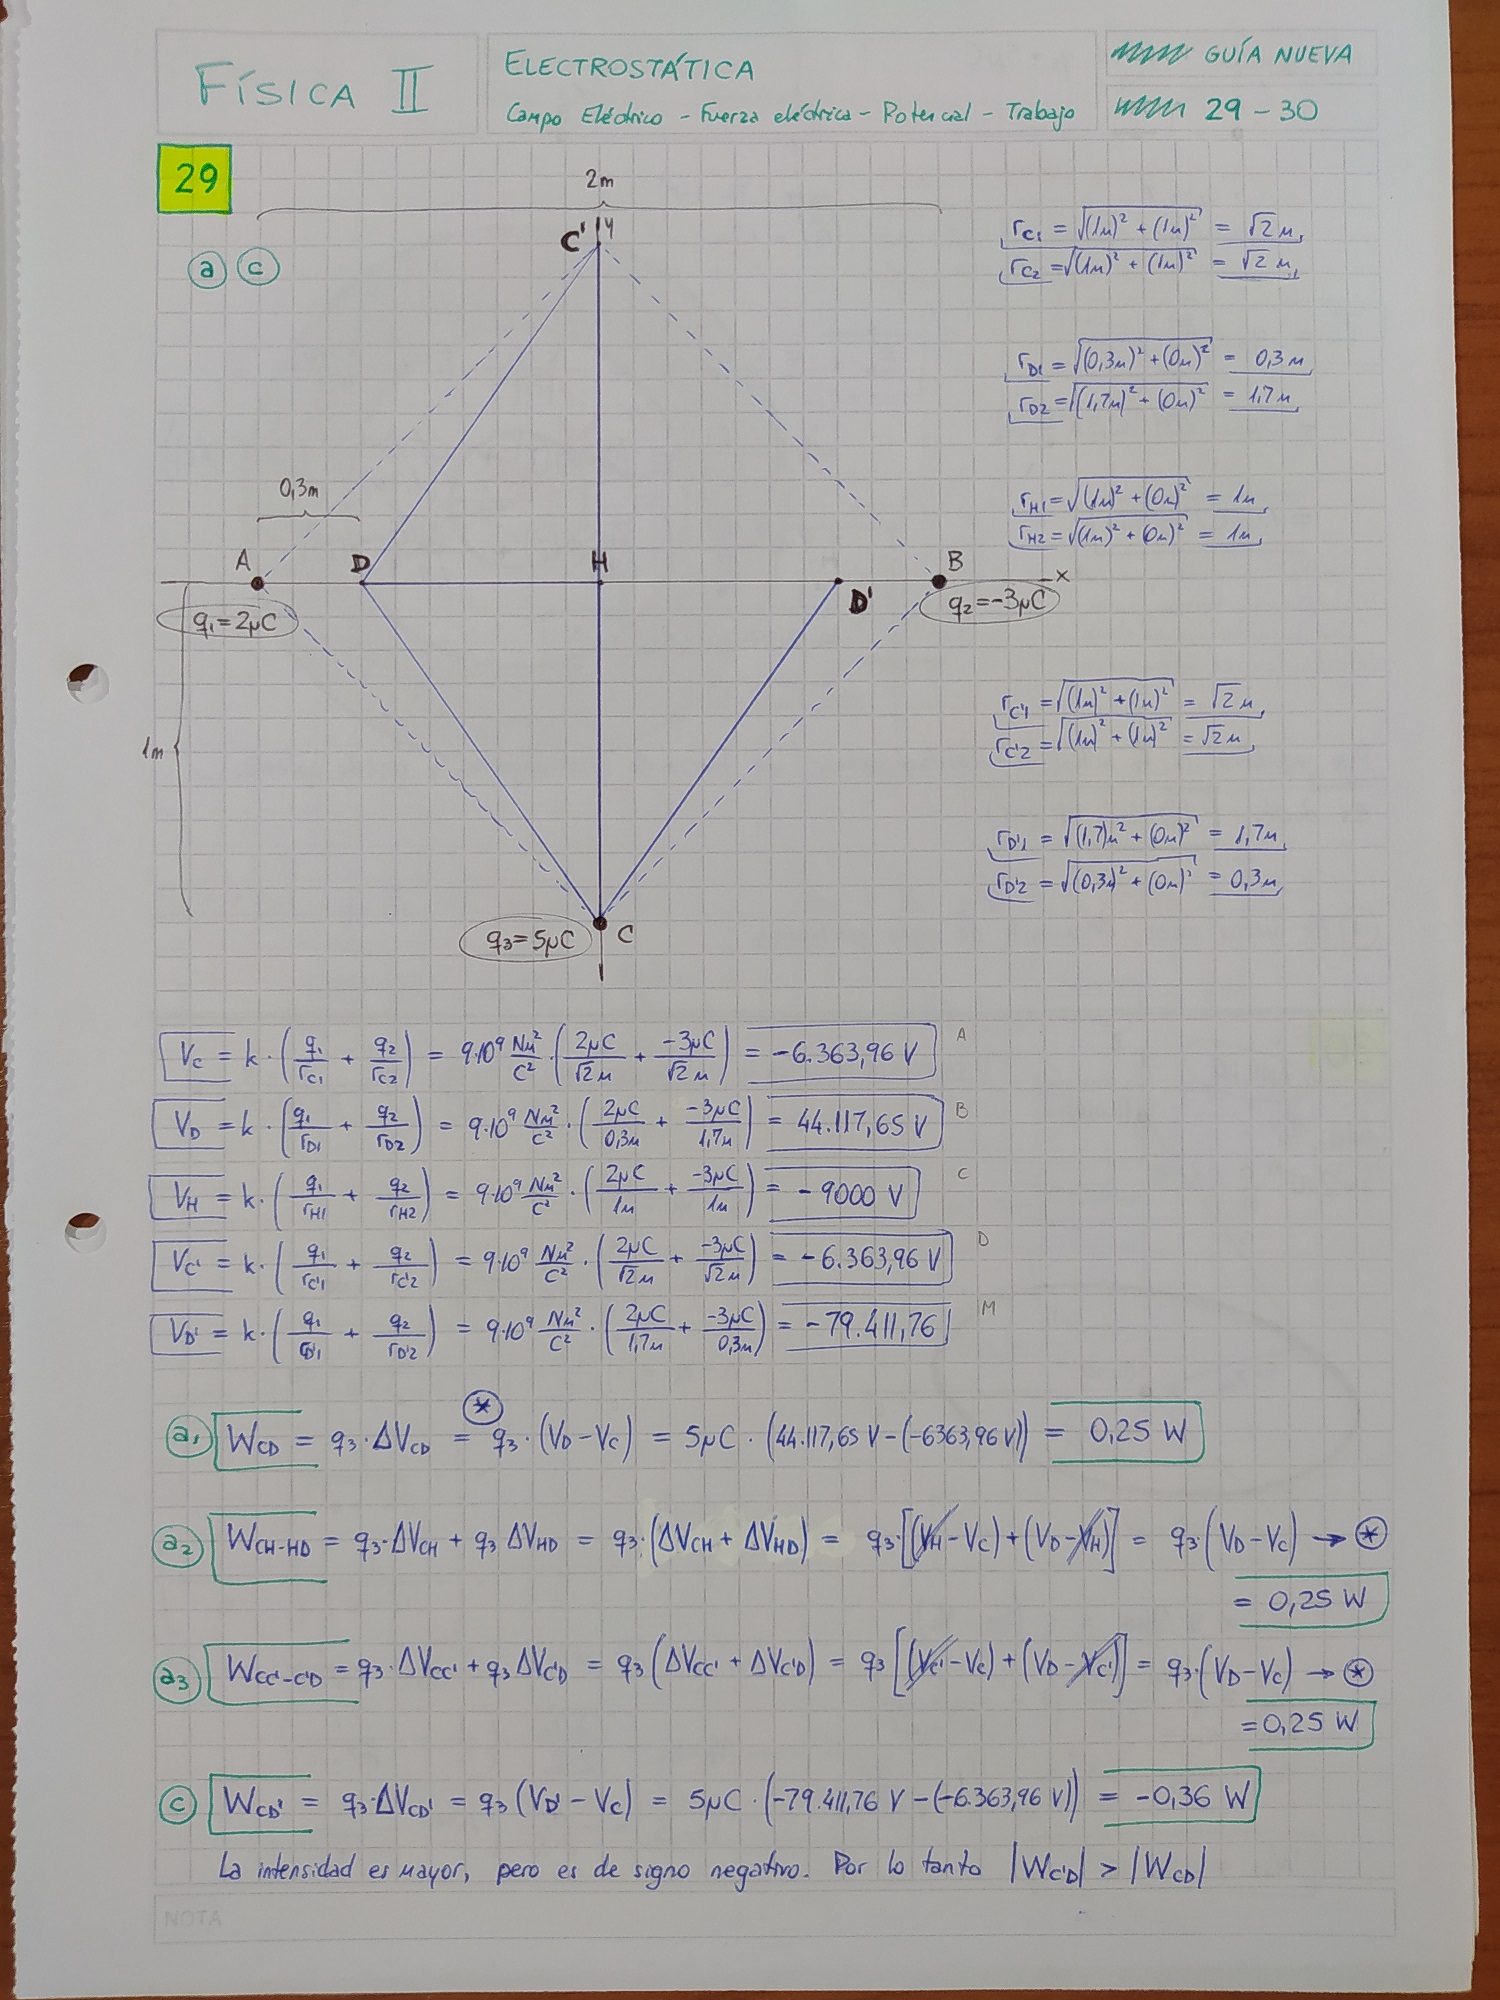 FÍSICA II
ELECTROSTÁTICA
Campo Eléctrico - Fuerza eléctrica - Potencial - Trabajo
GUÍA NUEVA
29 - 30
29
a c
2m
C' y
rC1 = √((1m)² + (1m)²) = √2 m
rC2 = √((1m)² + (1m)²) = √2 m
rD1 = √((0,3m)² + (0m)²) = 0,3m
rD2 = √((1,7m)² + (0m)²) = 1,7m
0,3m
rH1 = √((1m)² + (0m)²) = 1m
rH2 = √((1m)² + (0m)²) = 1m
A D H D' B x
q1 = 2μC
q2 = -3μC
1m
rC'1 = √((1m)² + (1m)²) = √2 m
rC'2 = √((1m)² + (1m)²) = √2 m
rD'1 = √((1,7)m² + (0m)²) = 1,7m
rD'2 = √((0,3m)² + (0m)²) = 0,3m
q3 = 5μC C
VC = k · (q1/rC1 + q2/rC2) = 9·10⁹ Nm²/C² · (2μC/√2 m + -3μC/√2 m) = -6.363,96 V A
VD = k · (q1/rD1 + q2/rD2) = 9·10⁹ Nm²/C² · (2μC/0,3m + -3μC/1,7m) = 44.117,65 V B
VH = k · (q1/rH1 + q2/rH2) = 9·10⁹ Nm²/C² · (2μC/1m + -3μC/1m) = -9000 V C
VC' = k · (q1/rC'1 + q2/rC'2) = 9·10⁹ Nm²/C² · (2μC/√2 m + -3μC/√2 m) = -6.363,96 V D
VD' = k · (q1/rD'1 + q2/rD'2) = 9·10⁹ Nm²/C² · (2μC/1,7m + -3μC/0,3m) = -79.411,76 M
*
a1 WCD = q3 · ΔVCD = q3 · (VD - VC) = 5μC · (44.117,65 V - (-6363,96 V)) = 0,25 W
a2 WCH-HD = q3 · ΔVCH + q3 ΔVHD = q3 · (ΔVCH + ΔVHD) = q3 · [(VH - VC) + (VD - VH)] = q3 · (VD - VC) → *
= 0,25 W
a3 WCC'-C'D = q3 · ΔVCC' + q3 ΔVC'D = q3 (ΔVCC' + ΔVC'D) = q3 [(VC' - VC) + (VD - VC')] = q3 · (VD - VC) → *
= 0,25 W
c WCD' = q3 · ΔVCD' = q3 (VD' - VC) = 5μC · (-79.411,76 V - (-6.363,96 V)) = -0,36 W
La intensidad es mayor, pero es de signo negativo. Por lo tanto |WC'D| > |WCD|
NOTA